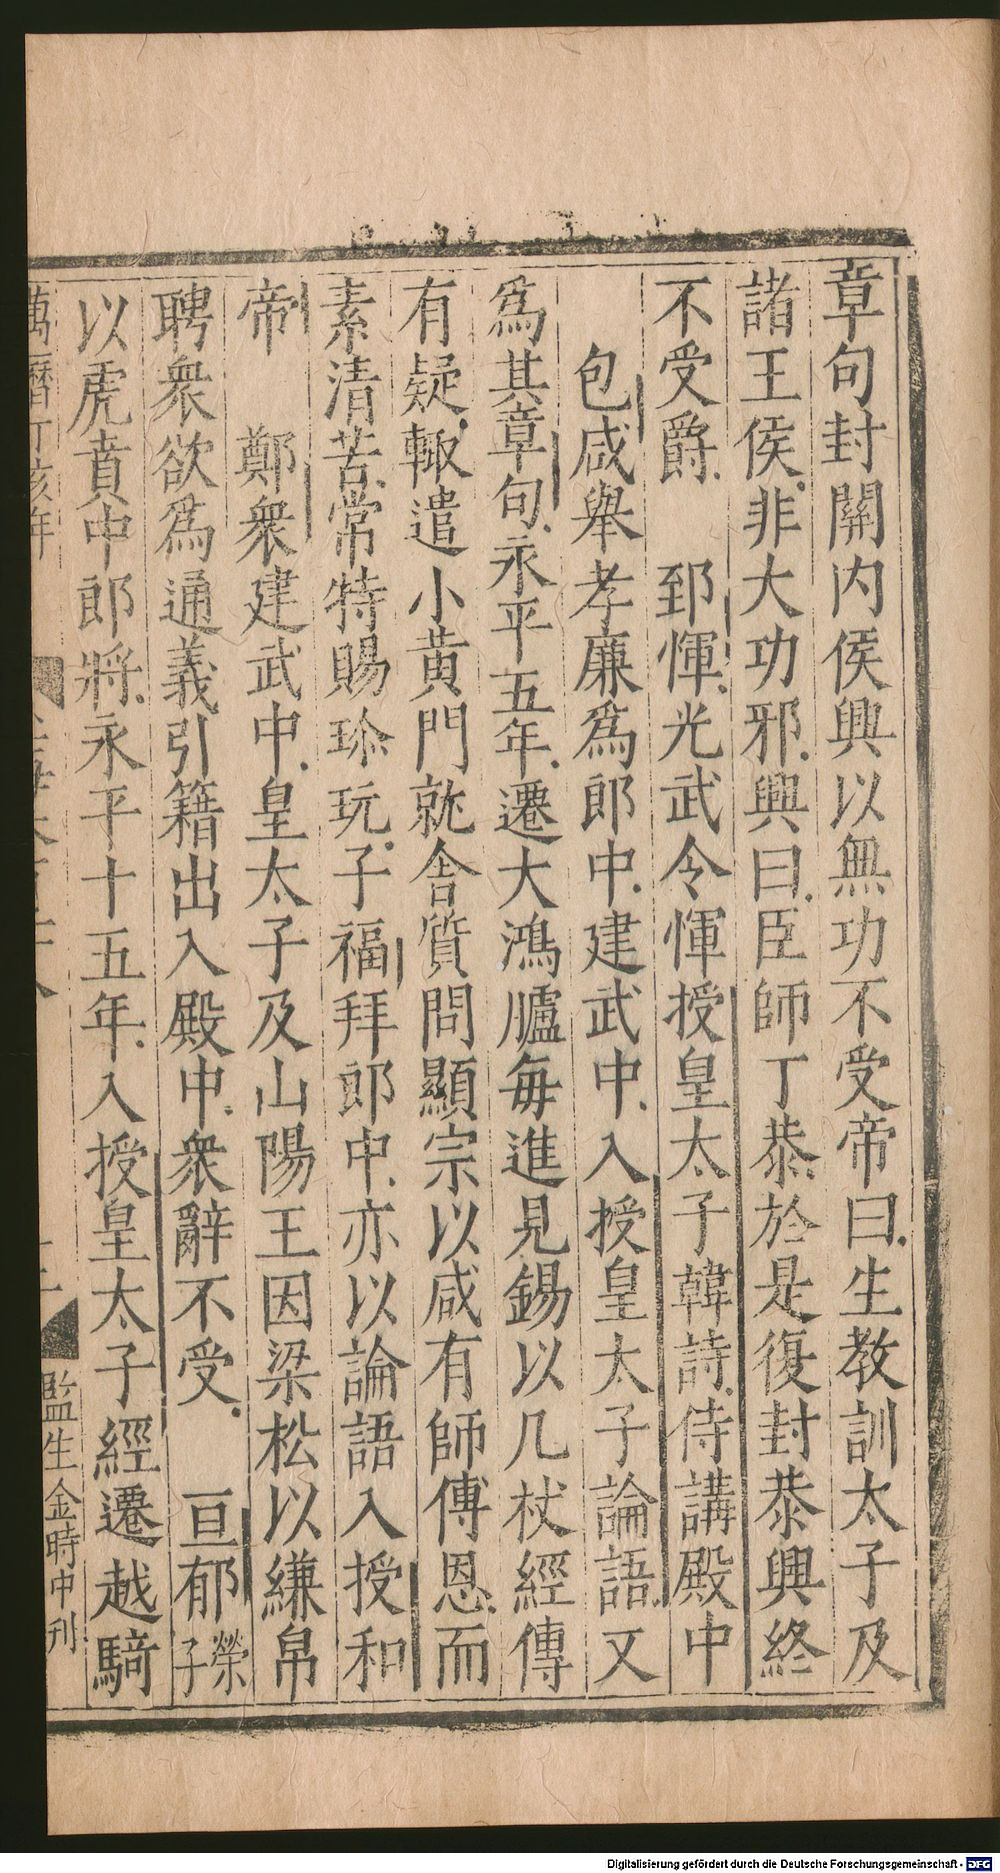 章句封關内侯興以無功不受帝曰生教訓太子及
諸王侯非大功邪興曰臣師丁恭於是復封恭興終
不受爵 郅惲光武令惲授皇太子韓詩侍講殿中
包咸舉孝廉爲郎中建武中入授皇太子論語又
爲其章句永平五年遷大鴻臚每進見錫以几杖經傳
有疑輙遣小黄門就舍質問顯宗以咸有師傅恩而
素清苦常特賜珍玩子福拜郎中亦以論語入授和
帝 鄭衆建武中皇太子及山陽王因梁松以縑帛
聘衆欲爲通義引籍出入殿中衆辭不受 亘郁榮子
以虎賁中郎將永平十五年入授皇太子經遷越騎
萬曆丁亥年 監生金時中刋
Digitalisierung gefördert durch die Deutsche Forschungsgemeinschaft - DFG